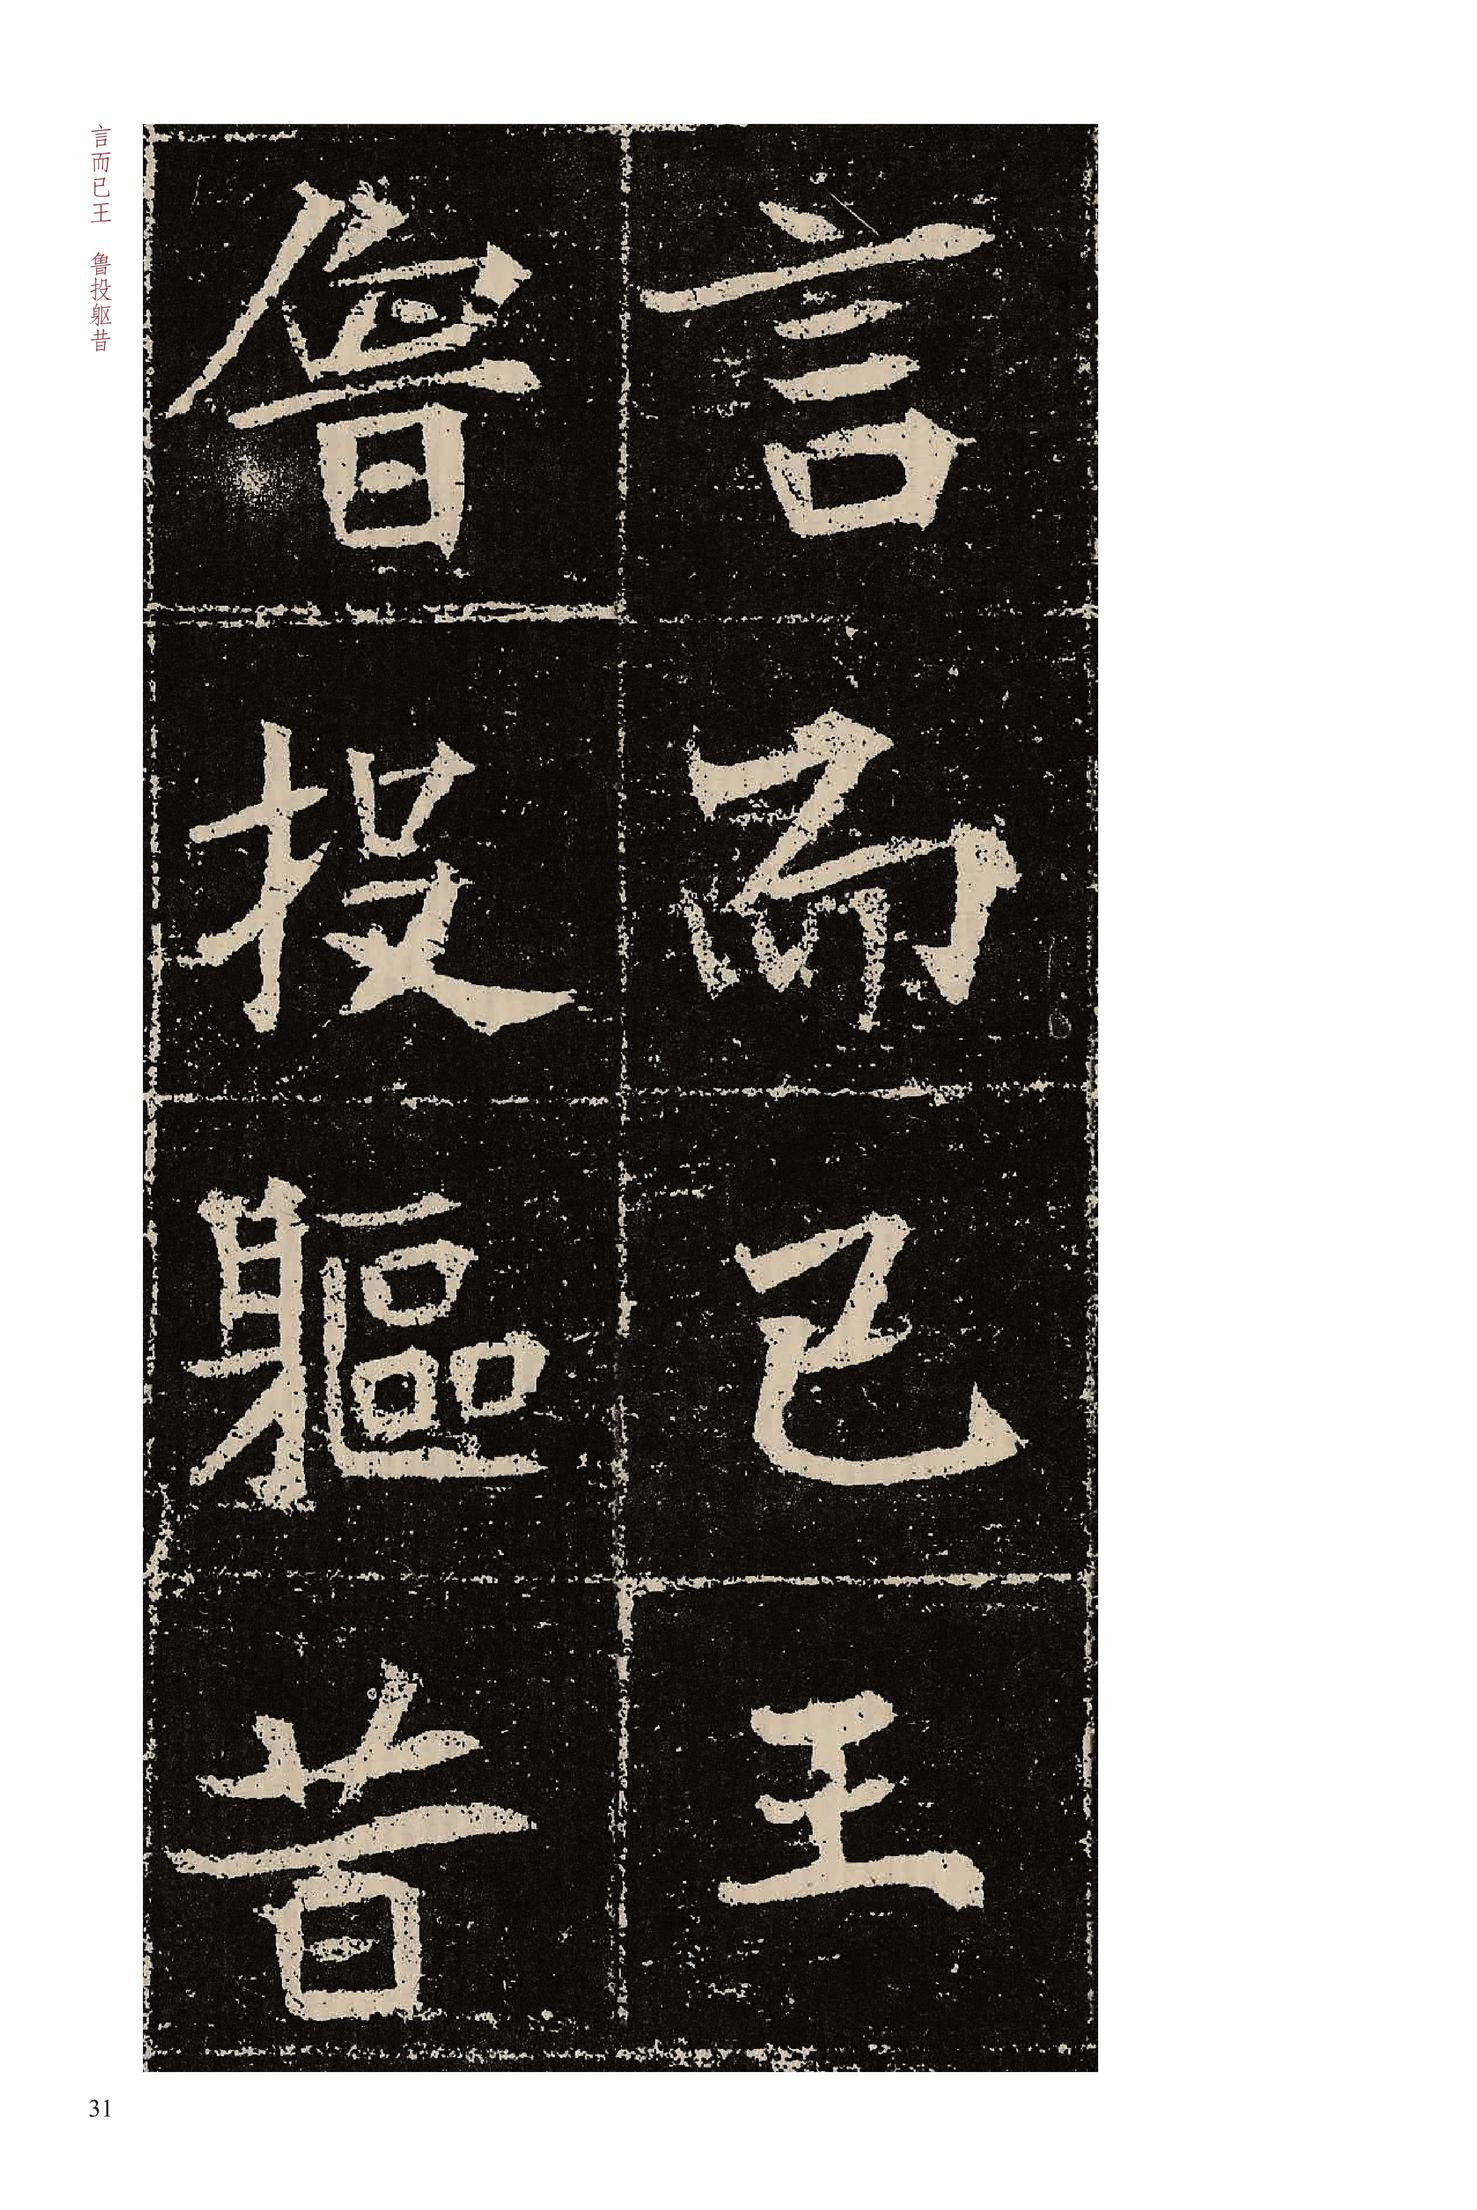 言而已王
魯投軀昔
言而已王 鲁投躯昔
31